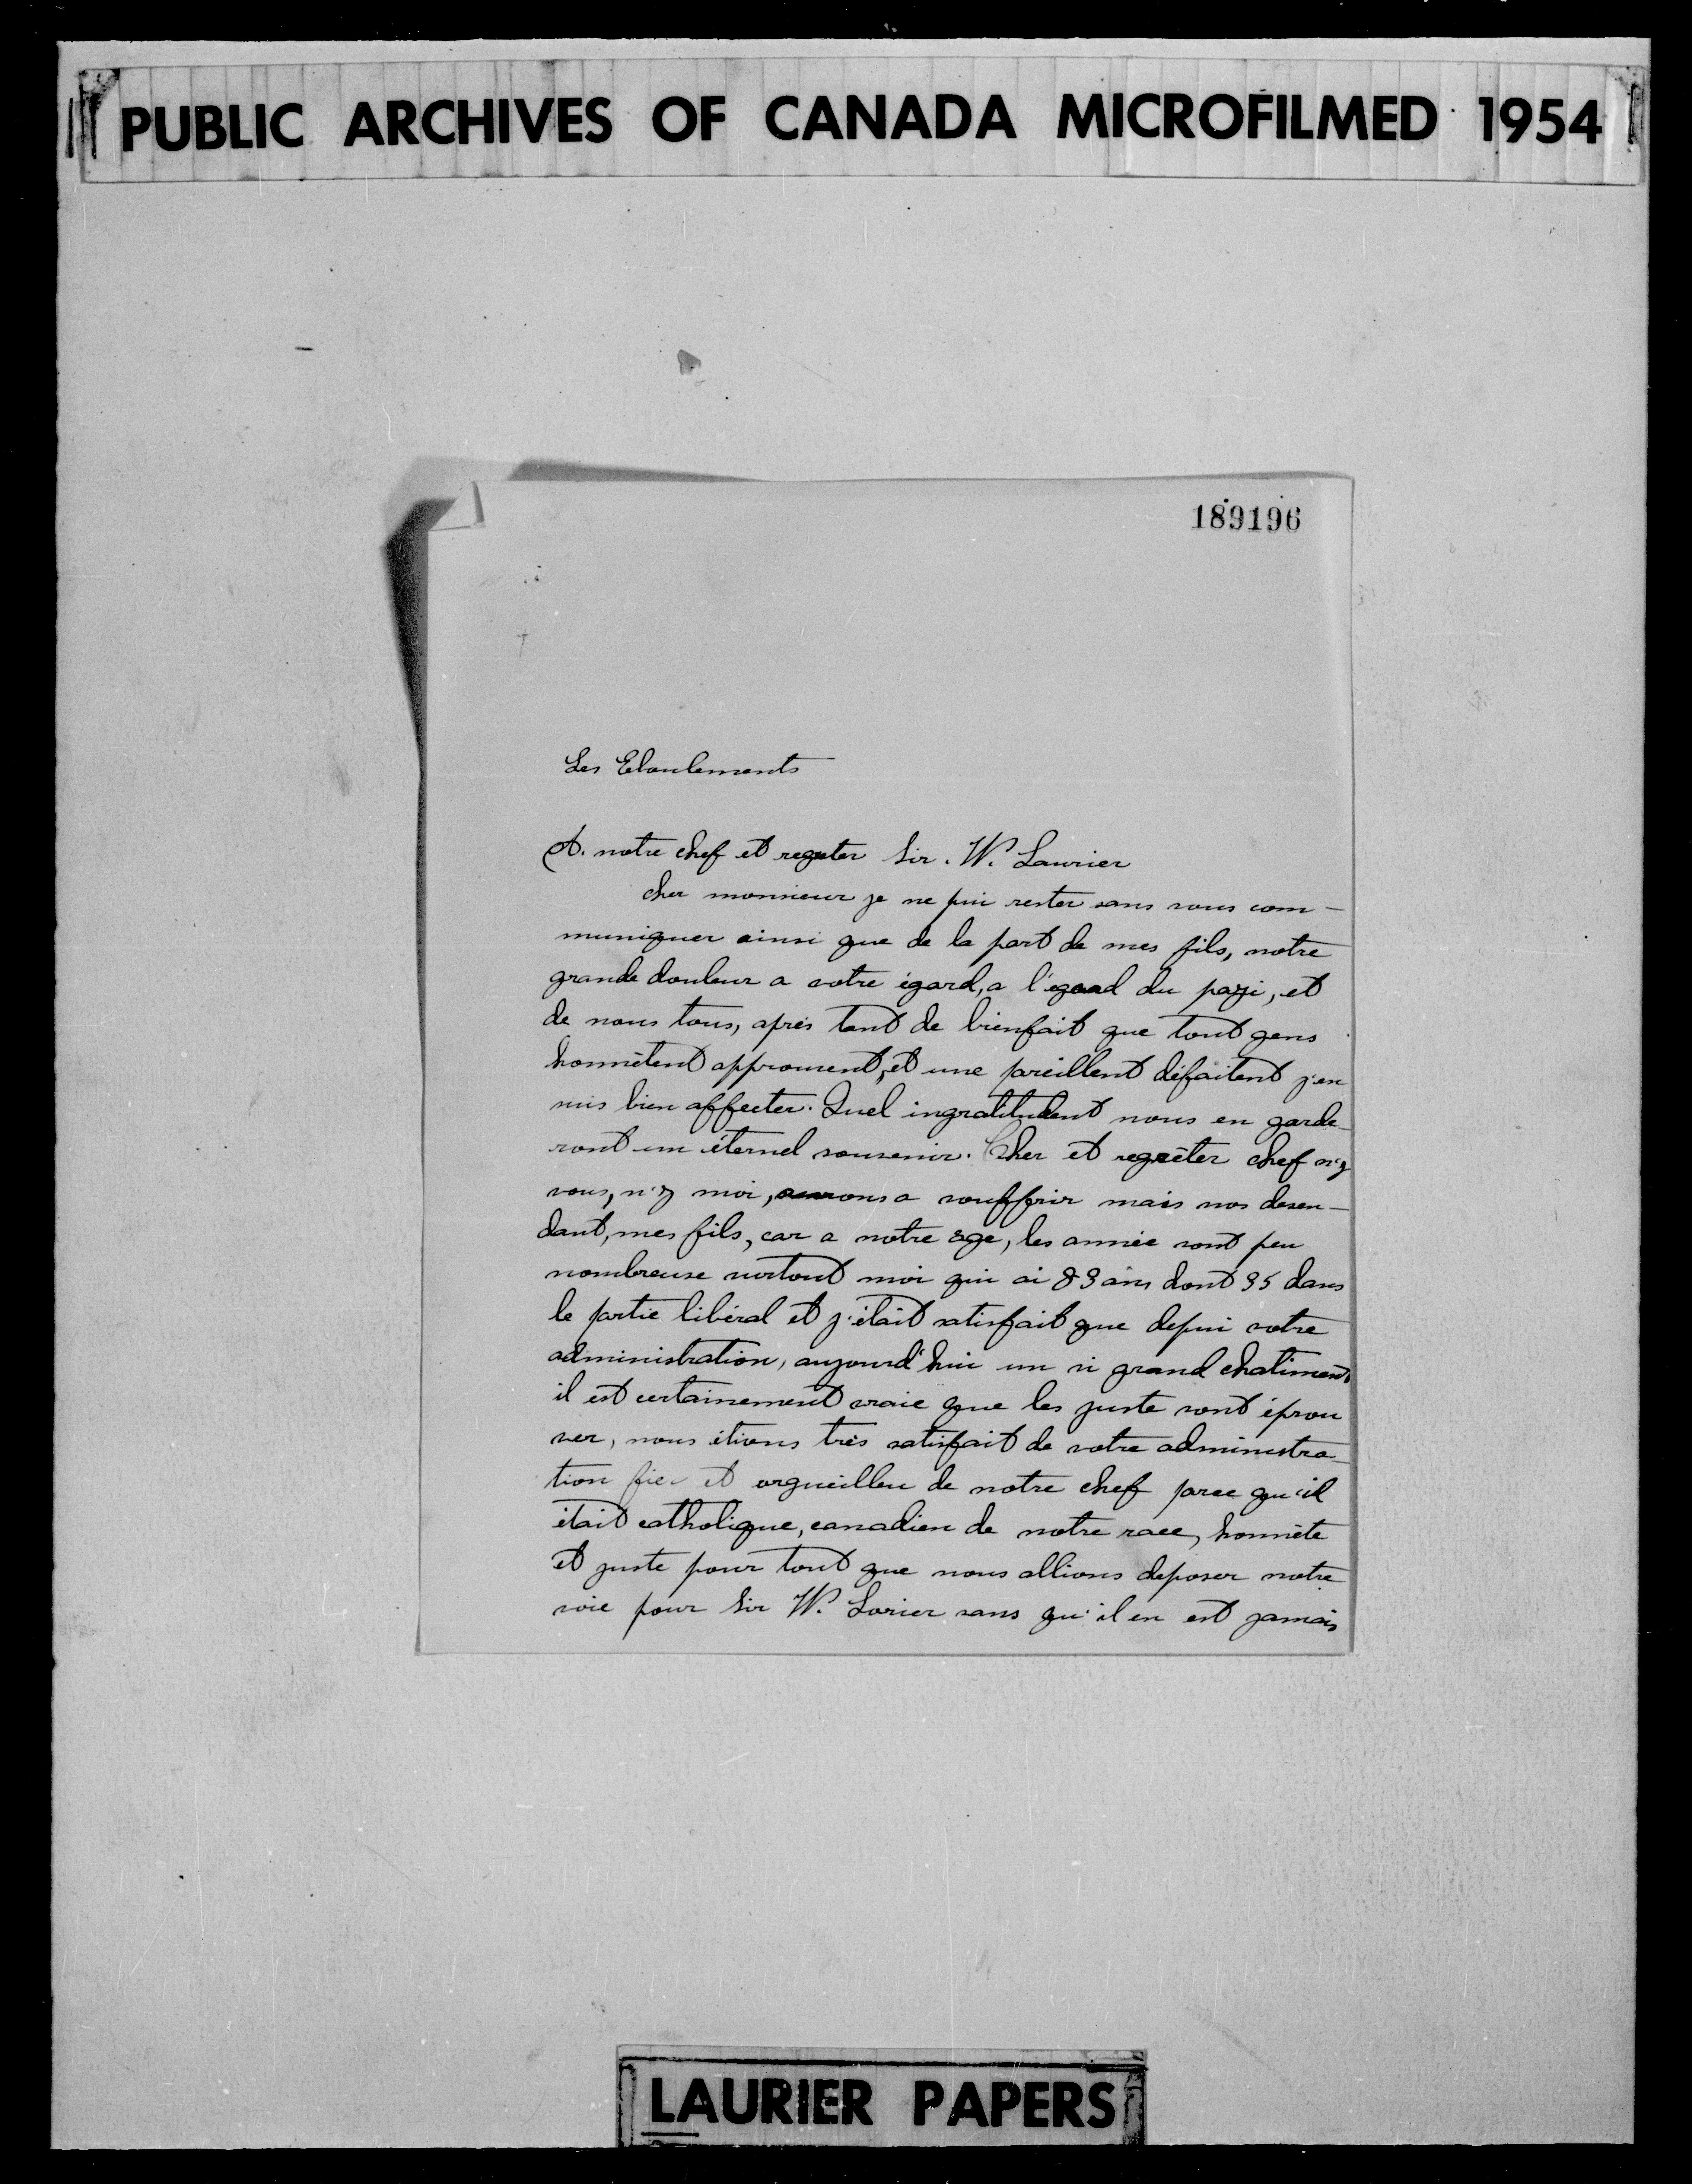 PUBLIC ARCHIVES OF CANADA MICROFILMED 1954
189196
Les Eboulements
A. notre chef et regreter Sir. W. Laurier
cher monsieur je ne pui rester sans vous com-
muniquer ainsi que de la part de mes fils, notre
grande douleur a votre égard, a l'égard du payi, et
de nous tous, après tant de bienfait que tout gens
honnêtent approuvent, et une pareillent défaitent j'en
suis bien affecter. Quel ingratitudent nous en garde-
ront un éternel souvenir. Cher et regrèter chef n'y
vous, n'y moi, aurons a souffrir mais nos desen-
dant, mes fils, car a notre age, les année sont peu
nombreuse surtout moi qui ai 83 ans dont 35 dans
le partie libéral et j'était satisfait que depui votre
administration, aujourd'hui un si grand chatiment
il est certainement vraie que les juste sont éprou
ver, nous étions très satisfait de votre administra-
tion fier et orgueilleu de notre chef parce qu'il
était catholique, canadien de notre race, honnête
et juste pour tout que nous allions deposer notre
voie pour Sir W. Lorier sans qu'il en est jamais
LAURIER PAPERS